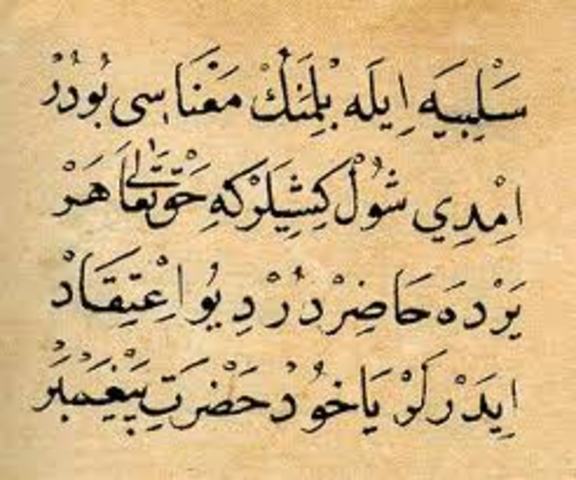 سَلْبِيَه اِيلَه بِلْمَنِكْ مَعْنَاسِى بُودُرْ
اِمْدِي شُولْ كِشِيلَرْ كِه حَقْ تَعَالَى هَرْ
يَرْدَه حَاضِرْدُرْ دِيُو اِعْتِقَادْ
اِيدَرْلَرْ يَاخُودْ حَضْرَتِ پَيْغَمْبَرْ